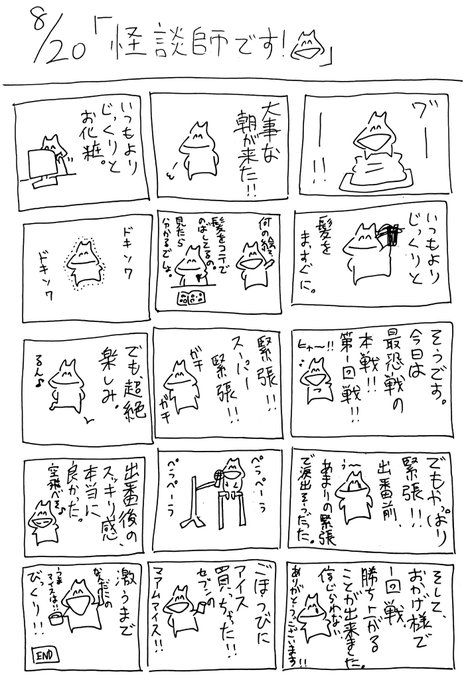 8/20「怪談師です!」
ワ"ー
ー!!
大事な
朝が来た!!
いつもより
じっくりと
お化粧。
いつもより
じっくりと
髪を
まっすぐに。
何の絵?
髪をコテで
のばしてるの。
見たら
分かるでしょ。
ドキンワ
ドキンワ
そうです。
今日は
最恐戦の
本戦!!
第1回戦!!
ヒャ〜!!
緊張!!
スーパー
緊張!!
ガチ
ガチ
でも、超絶
楽しみ。
るん♪
でもやっぱり
緊張!!
出番前、
あまりの緊張
で涙出そうだった。
ぺらぺーら
ぺらぺーら
出番後の
スッキリ感、
本当に
良かった。
空飛べそ♪
そして、
おかげ様で
1回戦
勝ち上がる
ことが出来ました。
信じられない
ありがとうございます!!
ごほうびに
アイス
買っちゃった!!
セブンの
マァムアイス!!
激うまで
びっくり!!
END